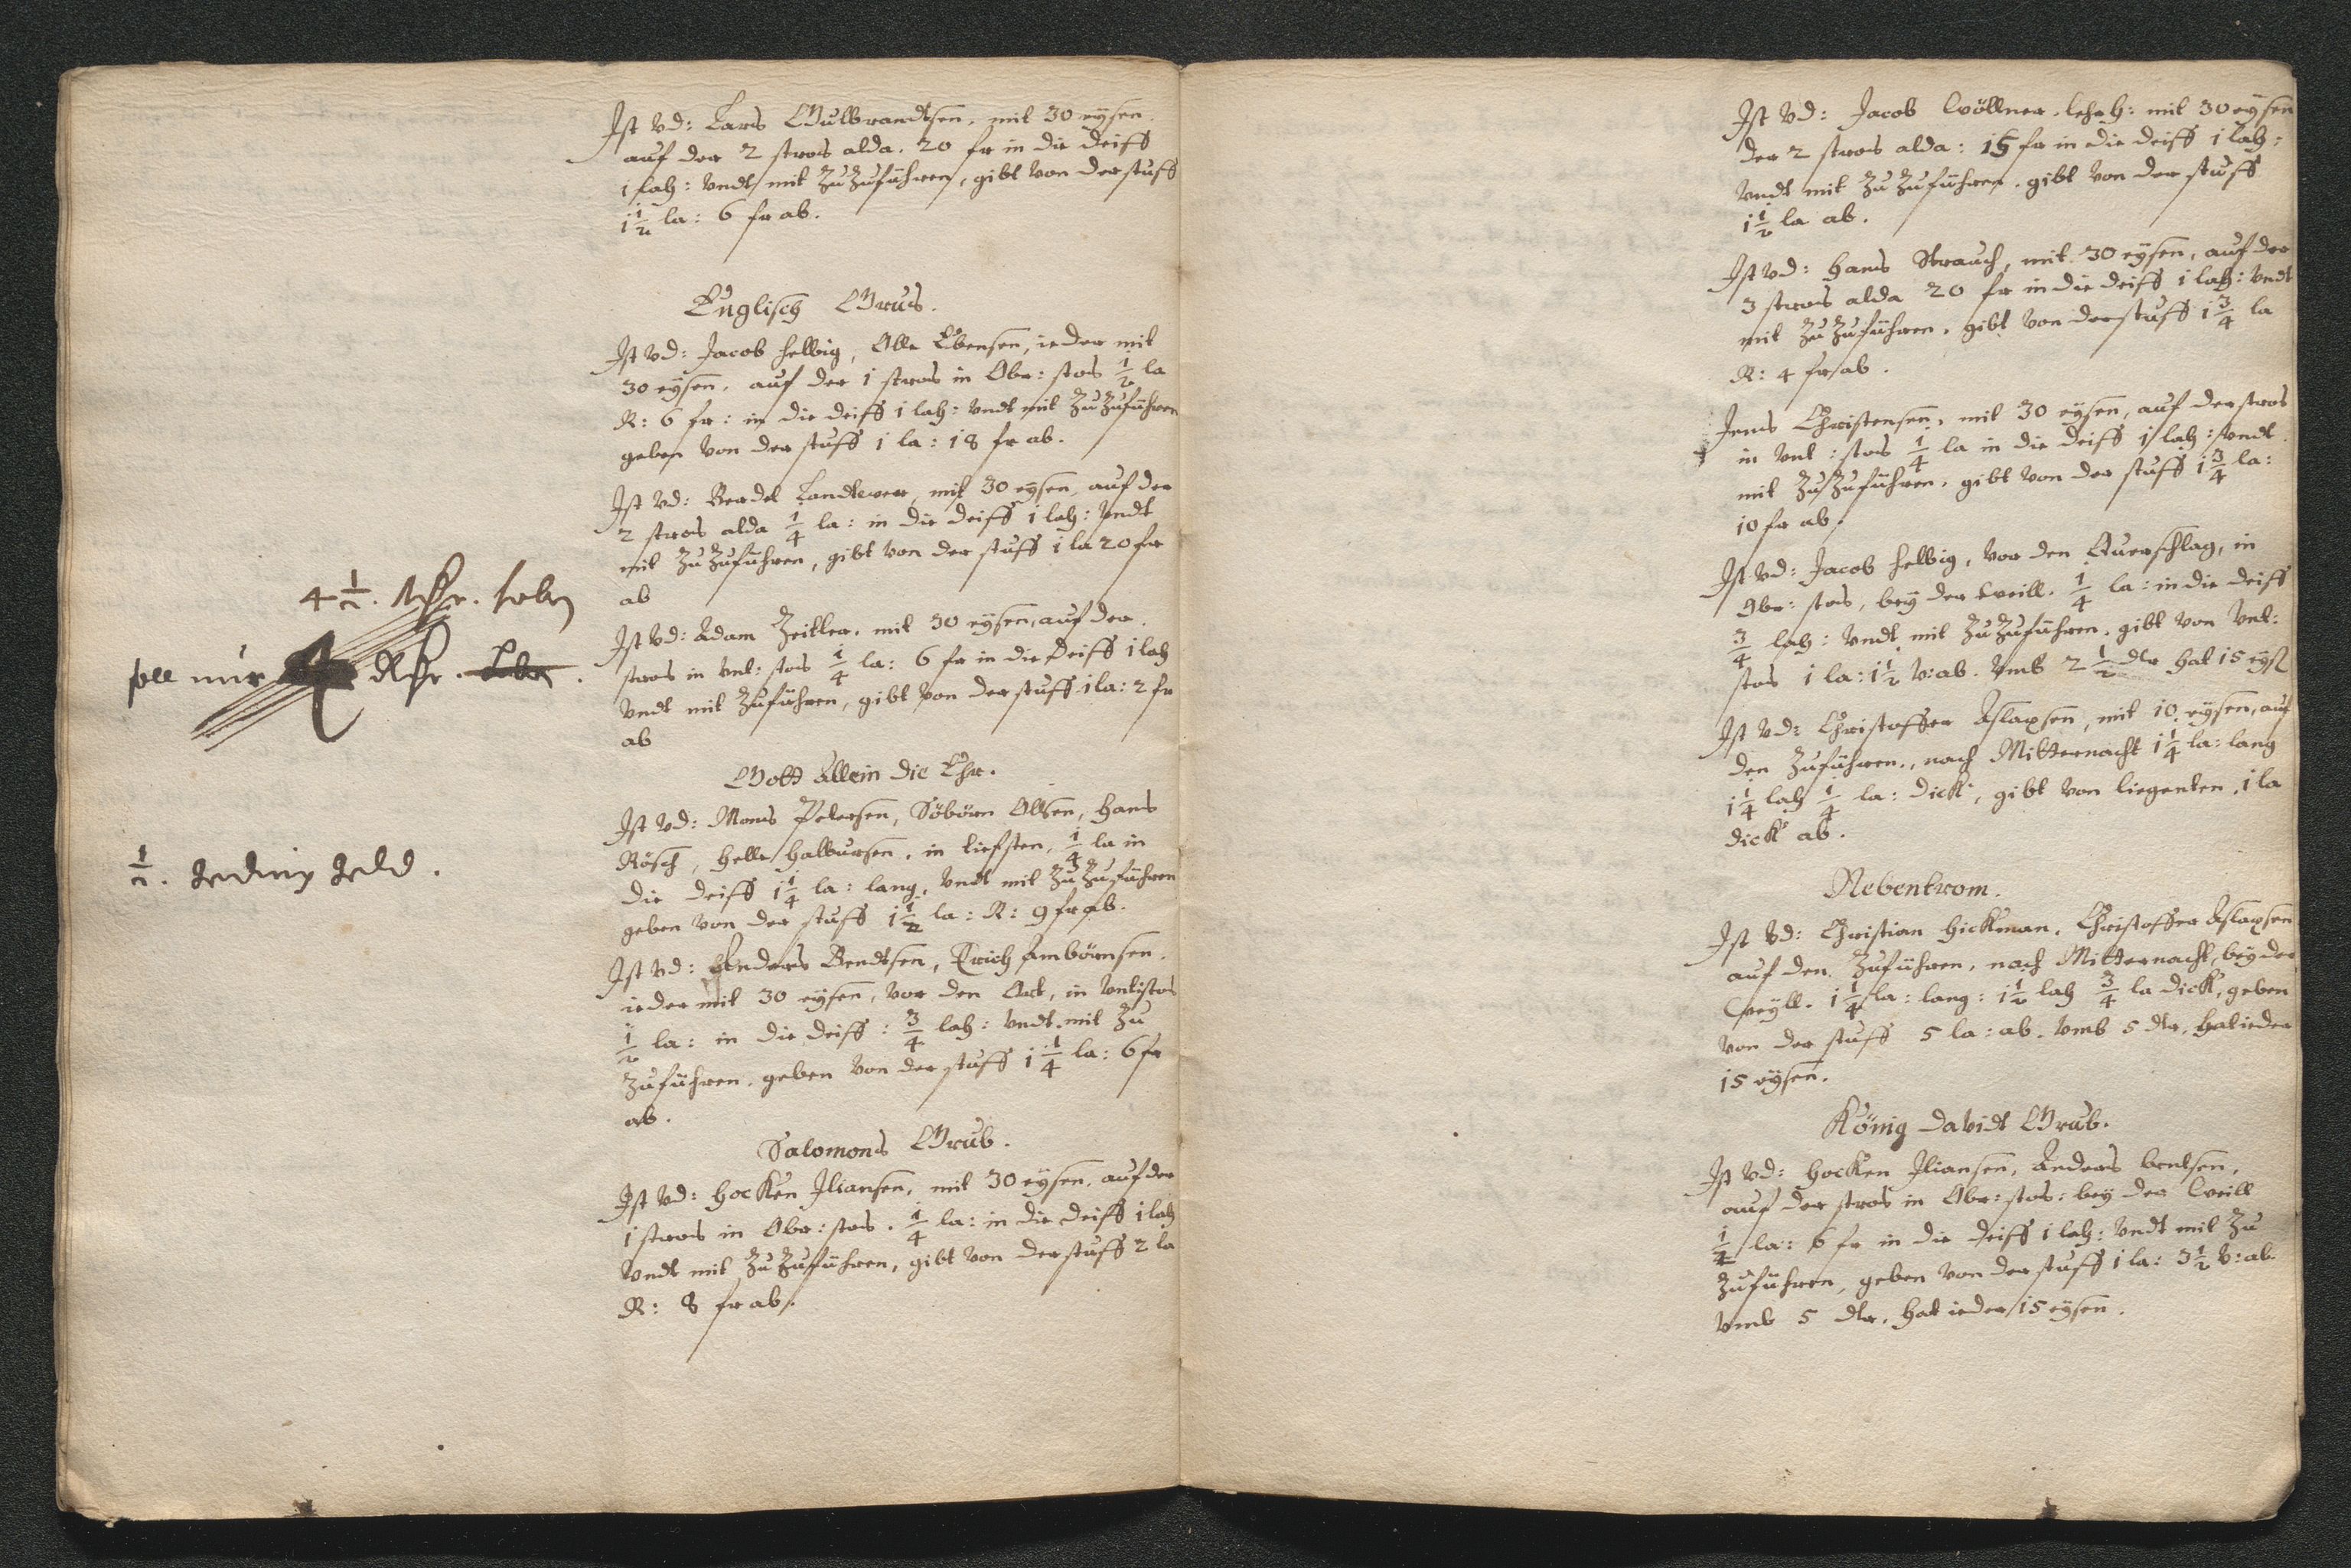 Ist vd: Lars Gulbrandtsen, mit 30 eÿsen.
auf der 2 stros alda. 20 fr in die deiff
1 lah: vndt mit Zu Zuführen, gibt von der stuff
1 1/2 la: 6 fr ab.
Englisch Grus.
Ist vd: Jacob Helbig, Olle Ebensen, ieder mit
30 eÿsen, auf der 1 stros in Obr: stos 1/2 la
R: 6 fr: in die deiff 1 lah: vndt mit Zu Zuführen
geben von der stuff 1 la: 18 fr ab.
Ist vd: Berdel Landtwer, mit 30 eÿsen, auf der
2 stros alda 1/4 la: in die deiff 1 lah: vndt
mit Zu Zuführen, gibt von der stuff 1 la 20 fr
ab
4 1/2. haben
soll nur
Ist vd: Adam Zeitler, mit 30 eÿsen, auf der
stros in vnt: stos 1/4 la: 6 fr in die Deiff 1 lah
vndt mit Zuführen, gibt von der stuff 1 la: 2 fr
ab
Gott allein die Ehr.
Ist vd: Mons Petersen, Söbörn Ollsen, Hans
Rösch, Helle Halbursen, in tiefsten, 1/4 la in
die deiff 1 1/4 la: lang, vndt mit Zu Zuführen
geben von der stuff 1 1/2 la: R: 9 fr ab.
1/2. geding geld.
Ist vd: Anders Bendtsen, Erich Ambörnsen.
ieder mit 30 eÿsen, vor den Ort, in vnt: stos
1/2 la: in die deiff: 3/4 lah: vndt mit Zu
Zuführen. geben von der stuff 1 1/4 la: 6 fr
ab.
Salomons Grub.
Ist vd: Hocken Iliansen, mit 30 eÿsen, auf der
1 stros in Obr: stos. 1/4 la: in die deiff 1 lah
vndt mit Zu Zuführen, gibt von der stuff 2 la
R: 8 fr ab.
Ist vd: Jacob Cöllner, lehrh: mit 30 eÿsen
der 2 stros alda: 15 fr in die deiff 1 lah:
vndt mit Zu Zuführen. gibt von der stuff
1 1/2 la ab.
Ist vd: Hans Strauch, mit 30 eÿsen, auf der
3 stros alda 20 fr in die deiff 1 lah: vndt
mit Zu Zuführen. gibt von der stuff 1 3/4 la
R: 4 fr ab.
Jens Christensen, mit 30 eÿsen, auf der stros
in vnt: stos 1/4 la in die deiff 1 lah: vndt
mit Zu Zuführen. gibt von der stuff 1 3/4 la:
10 fr ab.
Ist vd: Jacob Helbig, vor den Querschlag, in
Obr: stos, beÿ der weill. 1/4 la: in die deiff
3/4 lah: vndt mit Zu Zuführen. gibt von vnt:
stos 1 la: 1 1/2 v: ab. vmb 2 1/2 dlr hat 15 eÿs
Ist vd: Christoffer Aslaxsen, mit 10 eÿsen, auf
den Zuführen., nach Mitternacht 1 1/4 la: lang
1 1/4 lah 1/4 la: dick, gibt von liegenten, 1 la
dick ab.
Nebentrom.
Ist vd: Christian Hickman, Christoffer Aslaxsen
auf den Zuführen, nach Mitternacht, beÿ der
weÿll. 1 1/4 la: lang: 1 1/2 lah 3/4 la dick, geben
von der stuff 5 la: ab. vmb 5 dlr, hat ieder
15 eÿsen.
König Davidt Grub.
Ist vd: Hocken Iliansen, Anders bentsen,
auf der stros in Obr: stos: beÿ der weill
1/4 la: 6 fr in die deiff 1 lah: vndt mit Zu
Zuführen, geben von der stuff 1 la: 3 1/2 v: ab.
vmb 5 dlr, hat ieder 15 eÿsen.